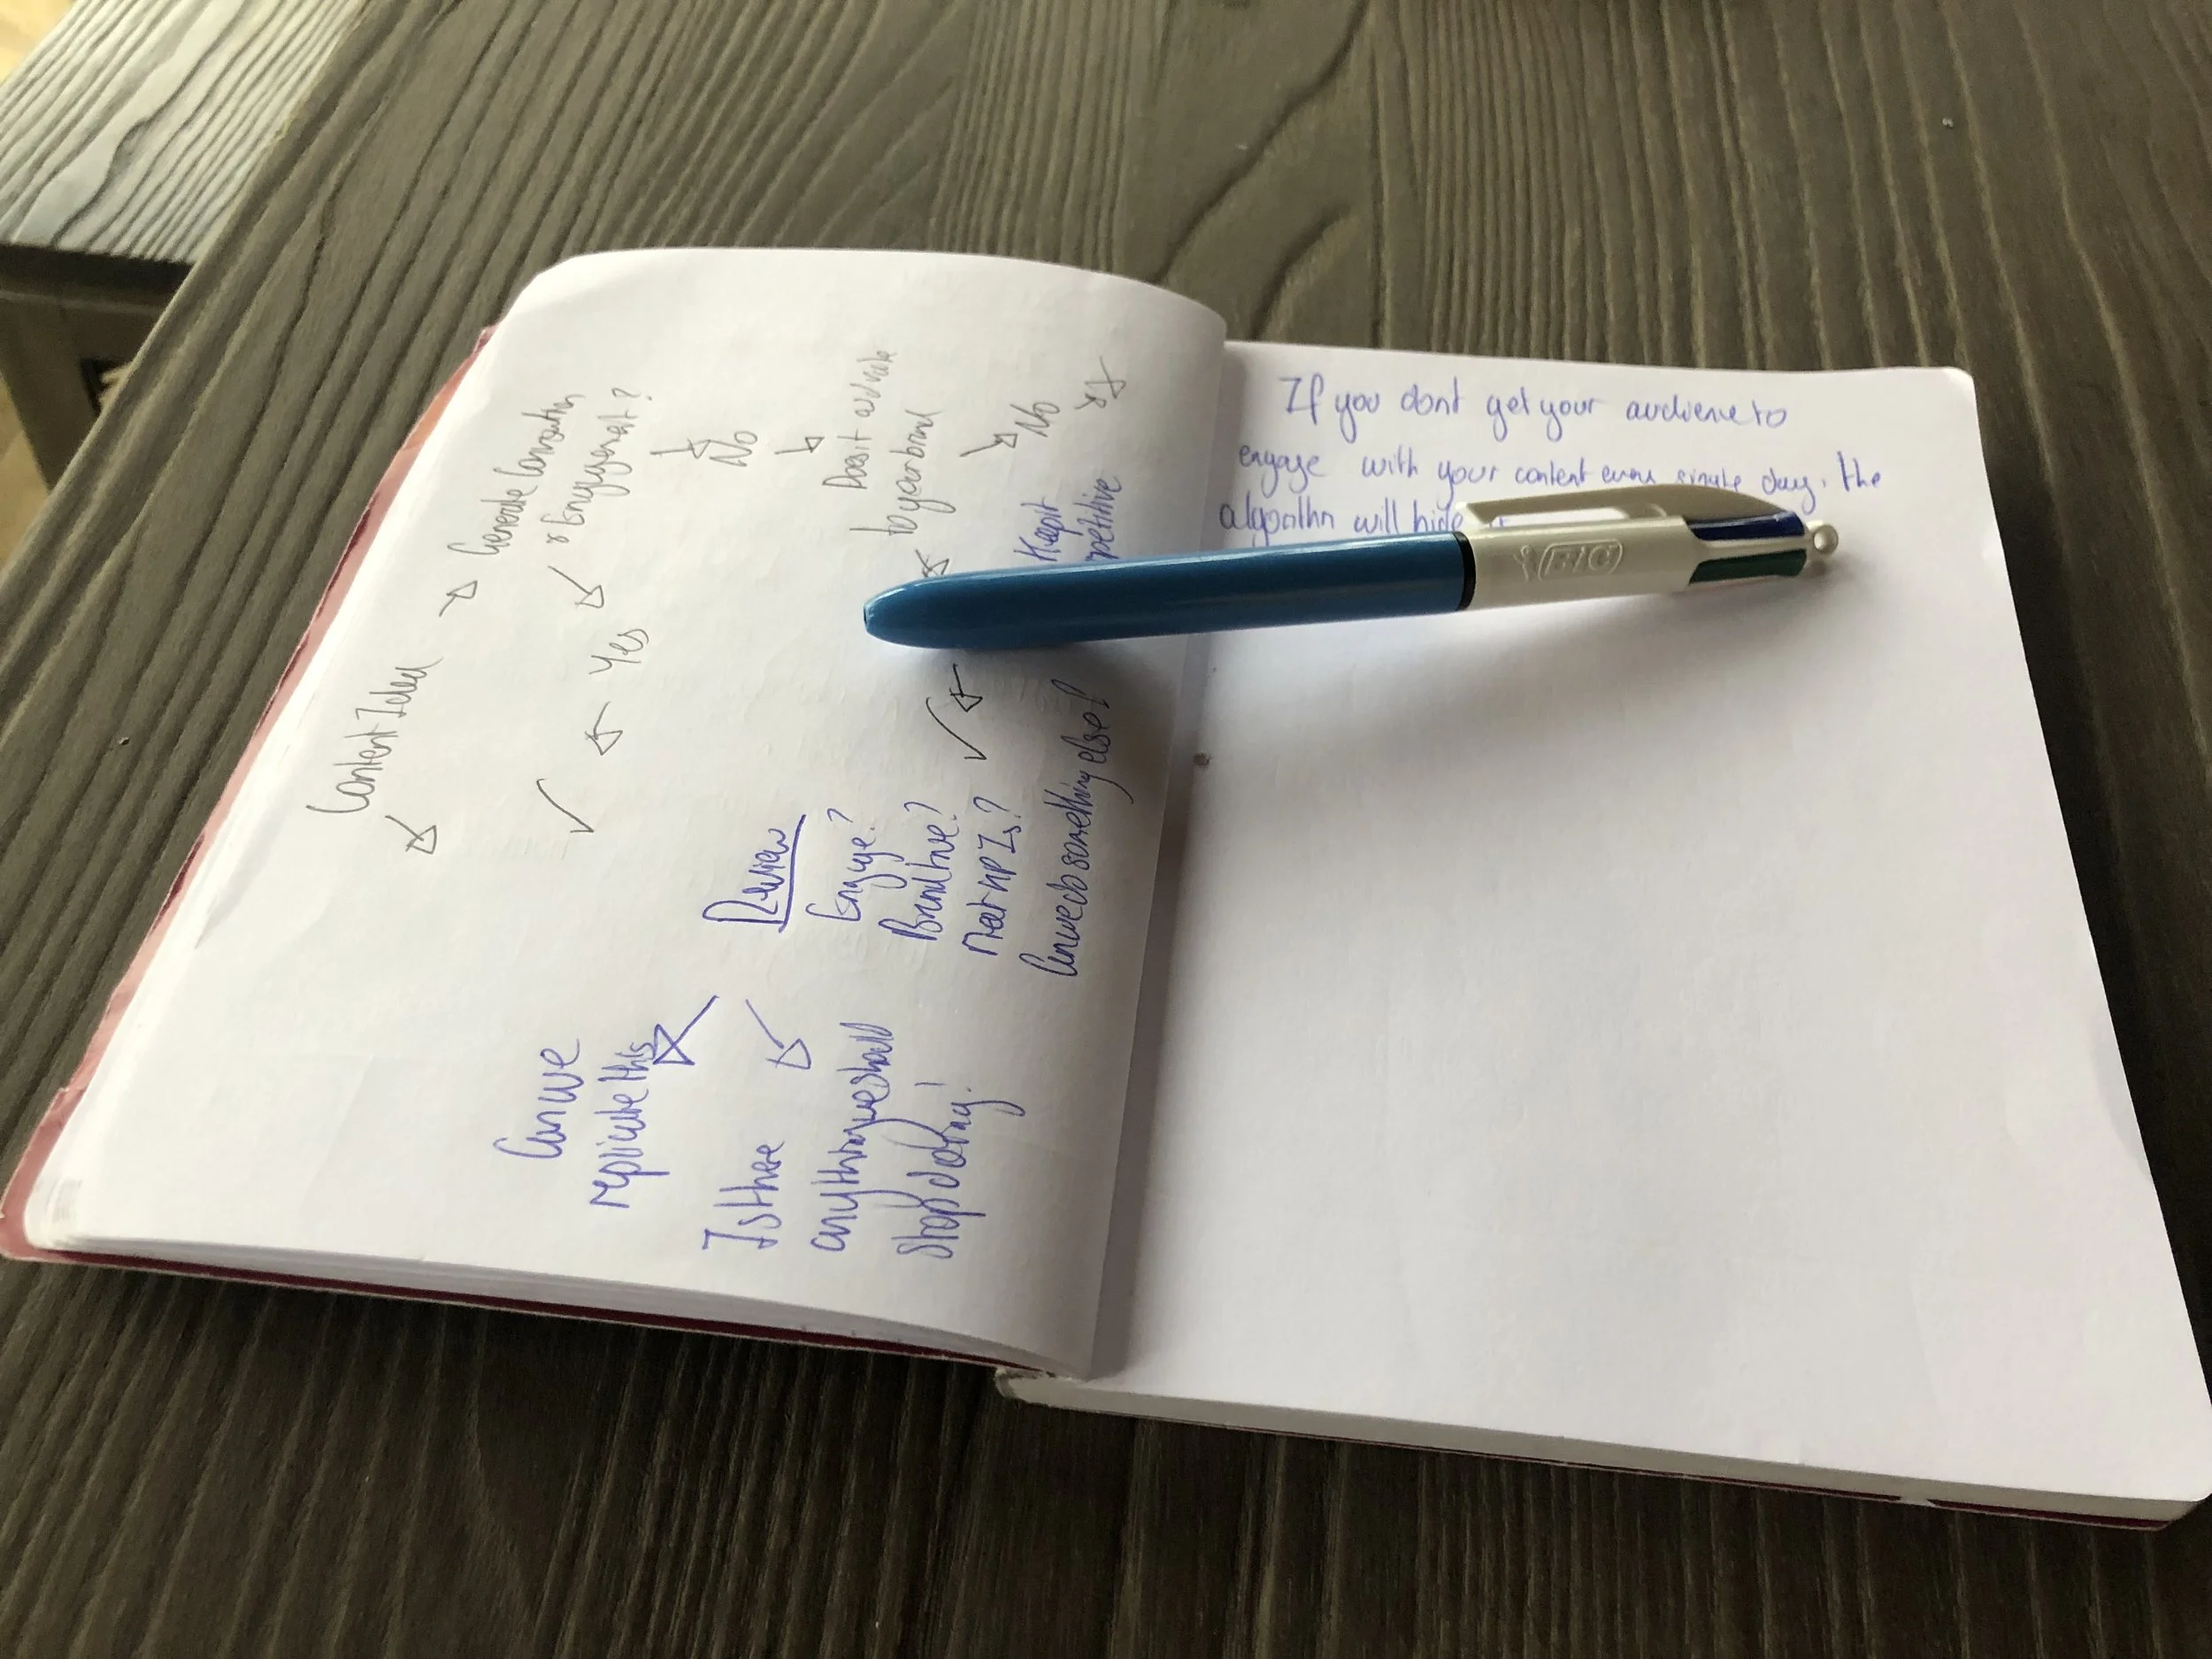 Content Idea
Generate Conversation
& Engagement?
Yes
No
Does it add value
to your brand
No
Keep it
repetitive
Review
Engage?
Brand love?
Meet KPIs?
Can we do something else?
Can we
replicate this
Is there
anything we should
stop doing!
If you dont get your audience to
engage with your content every single day, the
algorithm will hide
BIC